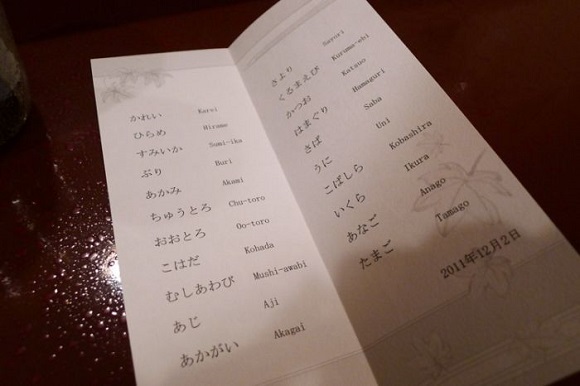 かれい Karei
ひらめ Hirame
すみいか Sumi-ika
ぶり Buri
あかみ Akami
ちゅうとろ Chu-toro
おおとろ Oo-toro
こはだ Kohada
むしあわび Mushi-awabi
あじ Aji
あかがい Akagai
さより Sayori
くるまえび Kuruma-ebi
かつお Katsuo
はまぐり Hamaguri
さば Saba
うに Uni
こばしら Kobashira
いくら Ikura
あなご Anago
たまご Tamago
2011年12月2日